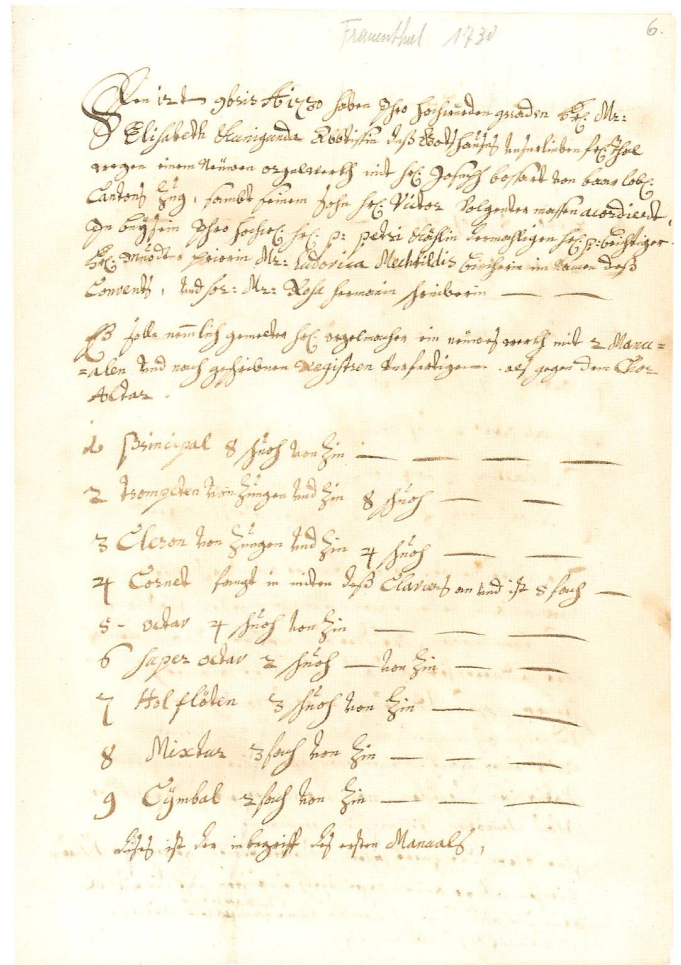 Frauenthal 1730
6.
Den 12t 9bris Aō 1730 haben Ihro hochwürden gnaden
Elisabeth Kunigunda Abbtissin deß Gottshauses Unser lieben frl: Thal
wegen einem Neüwen orgelwerch mit hr: Joseph bossart von baar lobl:
Cantons Zug, sambt seinem sohn hr: Victor volgender massen acordiert,
In beysein Ihro hochw: hr: p: petri dermahligen hr: p: beichtiger
Muoter priorin Mr: Ludovica Mechtildis im Namen deß
Convents, und Mr: Rosa schriberin — —
Eß solle nemlich gemelter hr: orgelmacher ein neüwes werch mit 2 Manu=
=alen und nach geschribnen Registren verfertigen als gegen dem Chor
Altar.
1 Principal 8 schuoh von Zin — — — —
2 trompeten von Zungen und Zin 8 schuoh — —
3 Cleron von Zungen und Zin 4 schuoh — —
4 Cornet fangt in miten deß Claviers an und ist 5 fach —
5 - octav 4 schuoh von Zin — — —
6 super octav 2 schuoh — von Zin — —
7 Hol flöten 3 schuoh von Zin — —
8 Mixtur 3 fach von Zin — — —
9 Cÿmbal 2 fach von Zin — — —
dises ist der inbegriff des ersten Manuals,